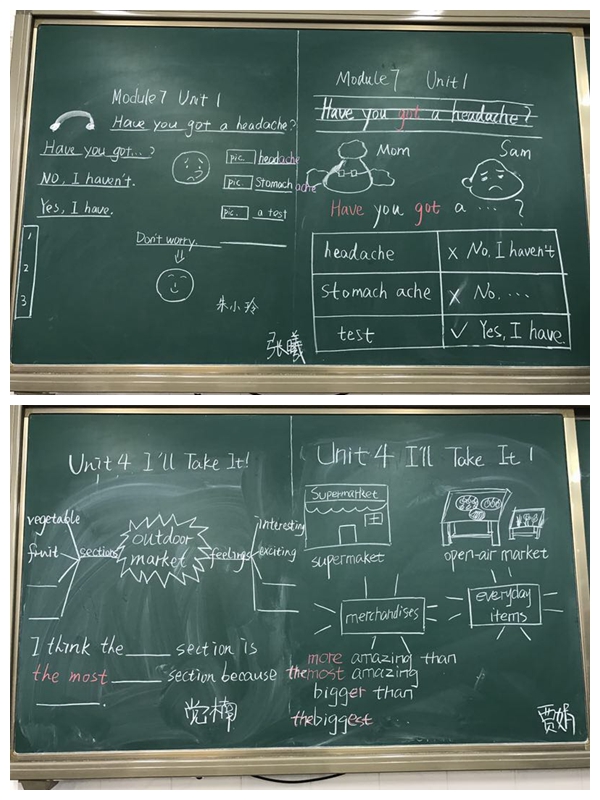 Module 7 Unit 1
Have you got a headache?
Have you got...?
No, I haven't.
Yes, I have.
pic. headache
pic. Stomach ache
pic. a test
Don't worry.
1
2
3
朱小玲
张曦
Module 7 Unit 1
Have you got a headache?
Mom
Sam
Have you got a ... ?
headache x No, I haven't
stomach ache x No. ...
test ✓ Yes, I have.
Unit 4 I'll Take It!
vegetable
fruit
sections
outdoor
market
feelings
interesting
exciting
I think the ____ section is
the most ____ section because
____.
党楠
Unit 4 I'll Take It!
Supermarket
supermaket
open-air market
merchandises
everyday
items
more amazing than
the most amazing
bigger than
the biggest
贾娟